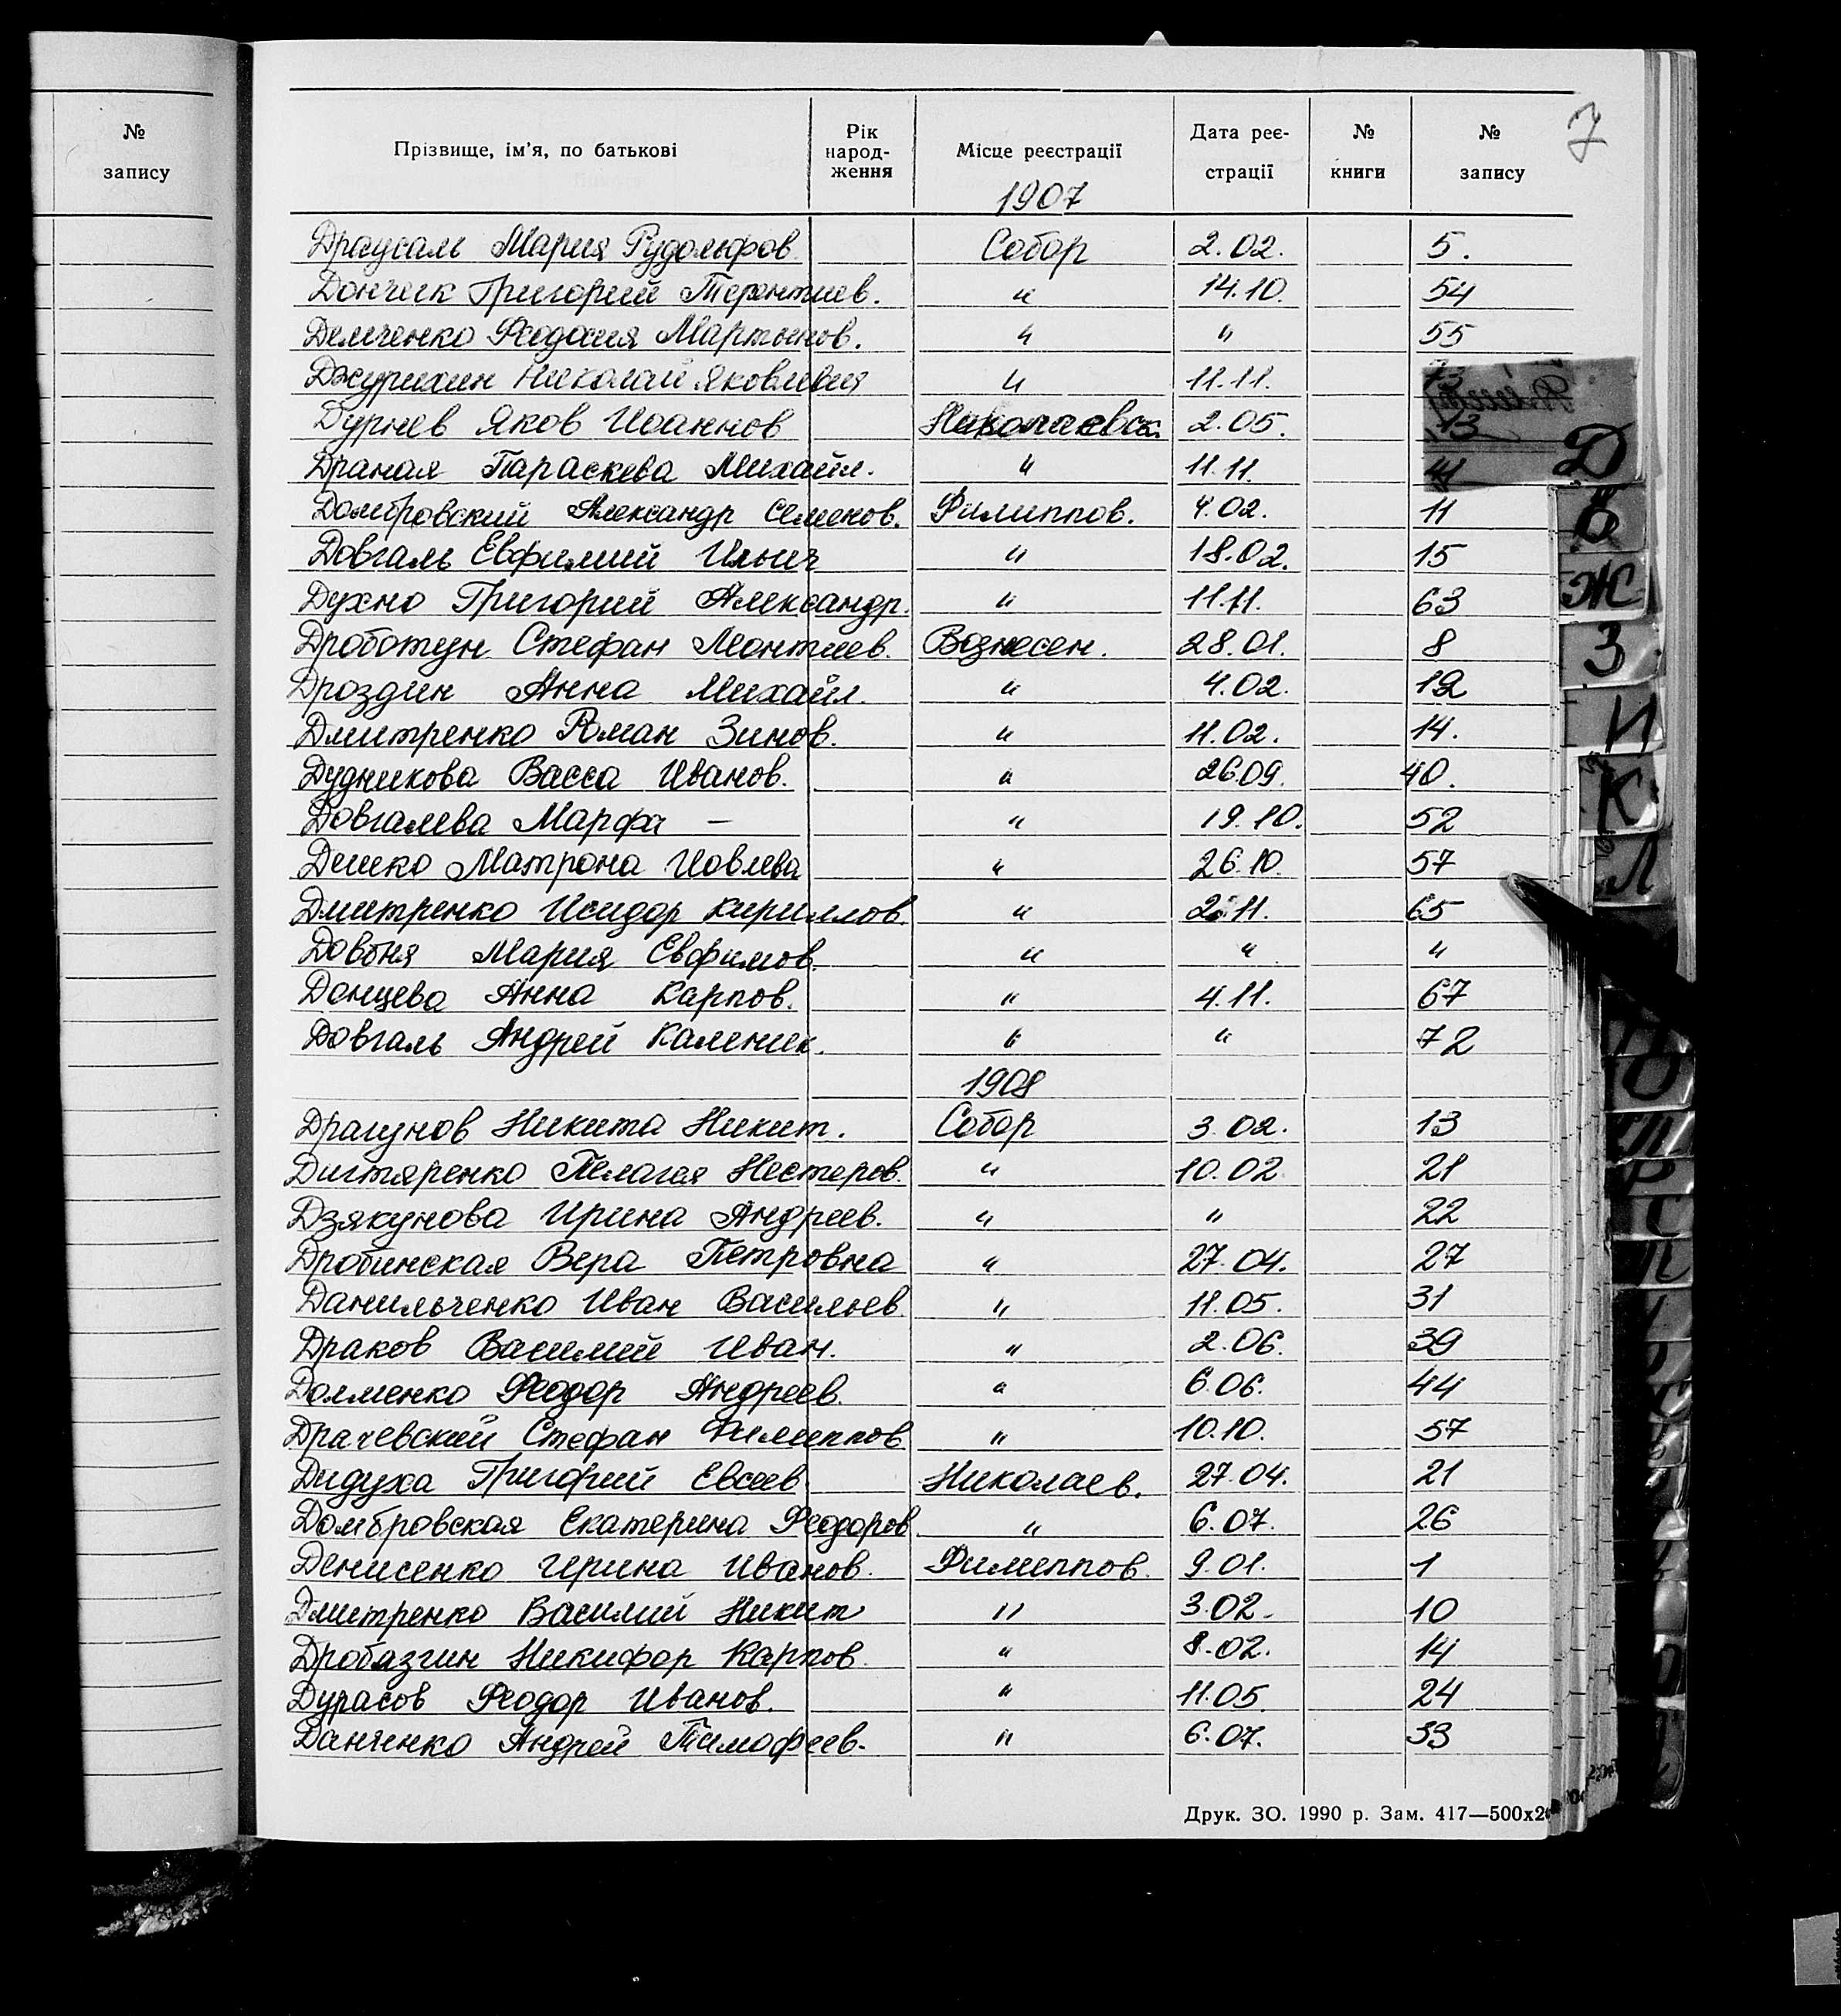 № запису
7
Прізвище, ім'я, по батькові Рік народ-ження Місце реєстрації Дата реє-страції № книги № запису
1907
Драусаль Мария Рудольфов. Собор 2.02. 5.
Дончик Григорий Терентиев. " 14.10. 54
Демченко Феодосия Мартынов. " " 55
Джурихин Николай Яковлевич " 11.11.
Дурнев Яков Иоаннов Николаевск. 2.05. 13
Драная Параскева Михайл. " 11.11. 41
Домбровский Александр Семенов. Филиппов. 4.02. 11
Довгаль Евфимий Ильич " 18.02. 15
Духно Григорий Александр. " 11.11. 63
Дроботун Стефан Леонтиев. Вознесен. 28.01. 8
Дроздин Анна Михайл. " 4.02. 12
Дмитренко Роман Зинов. " 11.02. 14.
Дудникова Васса Иванов. " 26.09. 40.
Довгалева Марфа — " 19.10. 52
Дешко Матрона Иовлева " 26.10. 57
Дмитренко Исидор Кириллов. " 2.11. 65
Довбня Мария Евфимов. " " "
Донцева Анна Карпов. " 4.11. 67
Довгаль Андрей Каленик. " " 72
1908
Драгунов Никита Никит. Собор 3.02. 13
Дигтяренко Пелагея Нестеров. " 10.02 21
Дзякунова Ирина Андреев. " " 22
Дробинская Вера Петровна " 27.04. 27
Данильченко Иван Васильев. " 11.05. 31
Драков Василий Иван. " 2.06. 39
Долменко Феодор Андреев. " 6.06. 44
Драчевский Стефан Филиппов. " 10.10. 57
Дидуха Григорий Евсеев. Николаев. 27.04. 21
Домбровская Екатерина Феодоров. " 6.07. 26
Денисенко Ирина Иванов. Филиппов. 9.01. 1
Дмитренко Василий Никит " 3.02. 10
Дробазгин Никифор Карпов. " 8.02. 14
Дурасов Феодор Иванов. " 11.05. 24
Данченко Андрей Тимофеев. " 6.07. 33
Друк. ЗО. 1990 р. Зам. 417—500х2
Д
Ж
З
И
К
Л
Ю
Р
С